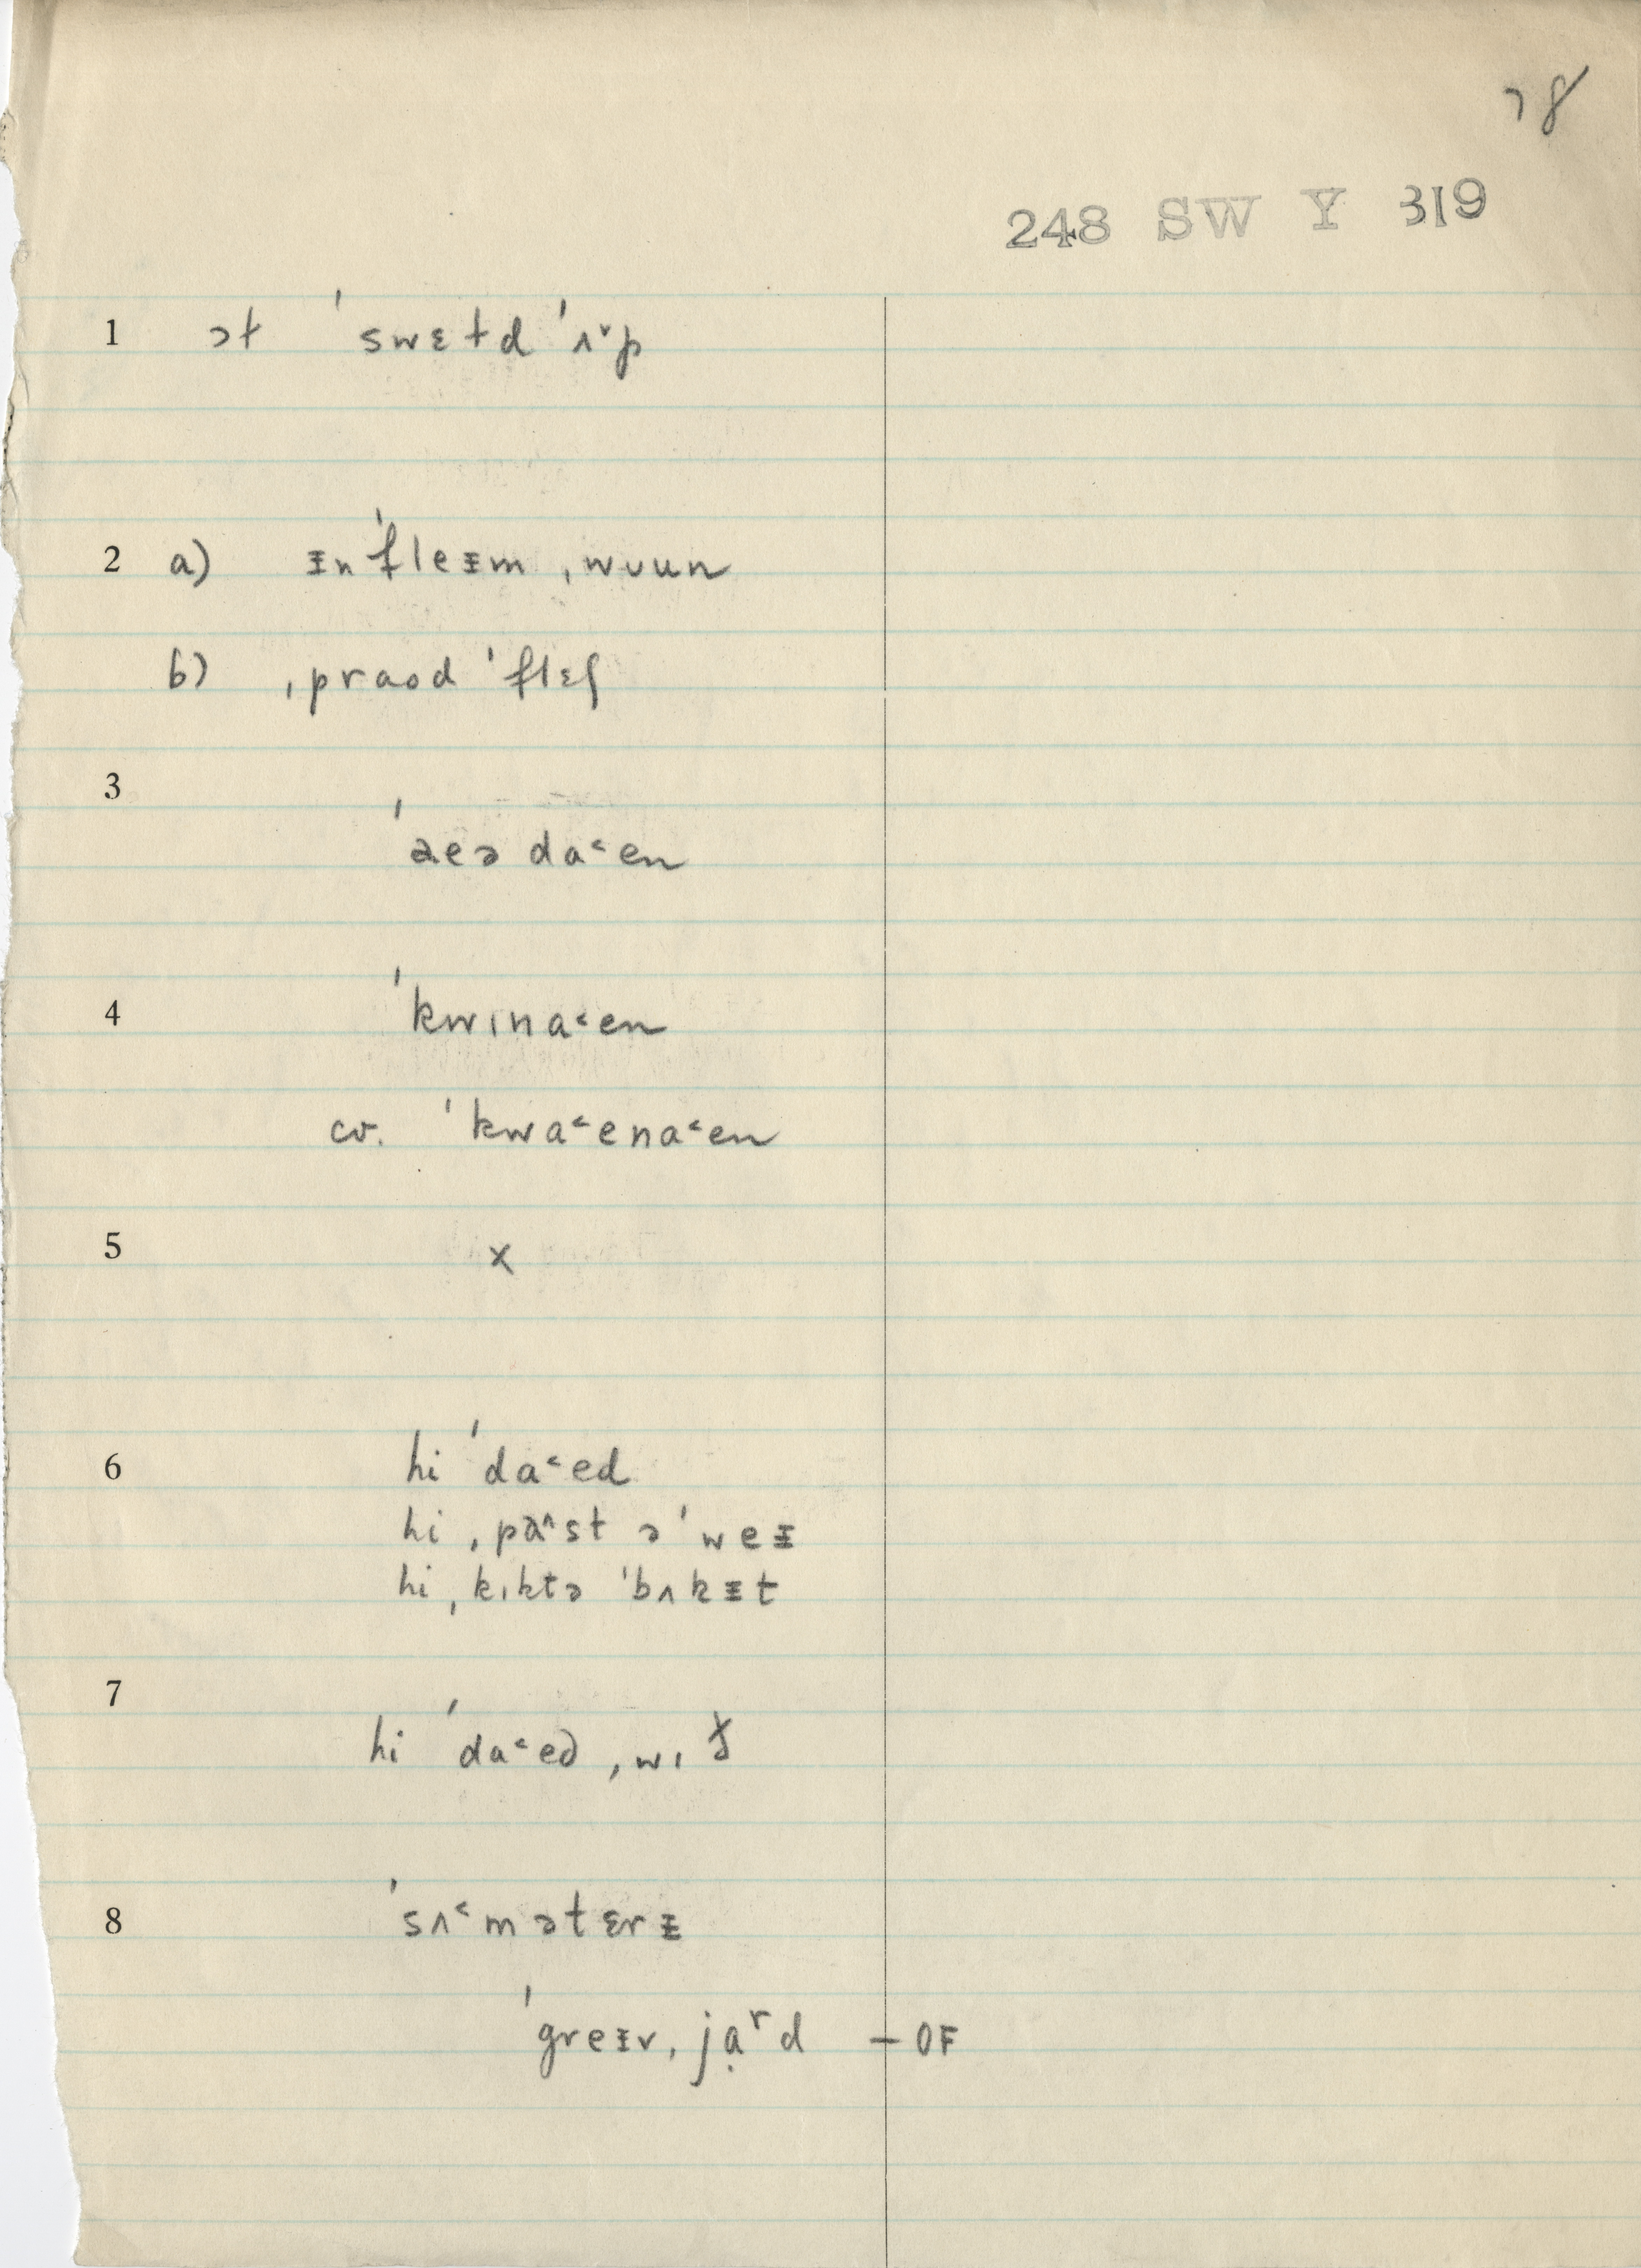 78
248 SW Y 319
1 ət ˈswɛtd ˈʌ˅p
2 a) ᵻnˈfleᵻm ˌwuun
b) ˌpraod ˈflɛʃ
3 ˈaeə da˂en
4 ˈkwɪna˂en
cv. ˈkwa˂ena˂en
5 x
6 hi ˈda˂ed
hi ˌpa˄st əˈweᵻ
hi ˌkɪktə ˈbʌkᵻt
7 hi ˈda˂ed ˌwɪ
8 ˈsʌ˂mətɛrᵻ
ˈgreᵻvˌjạʳd – OF